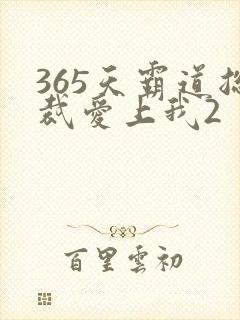 365天霸道总
裁爱上我2
百里雲初